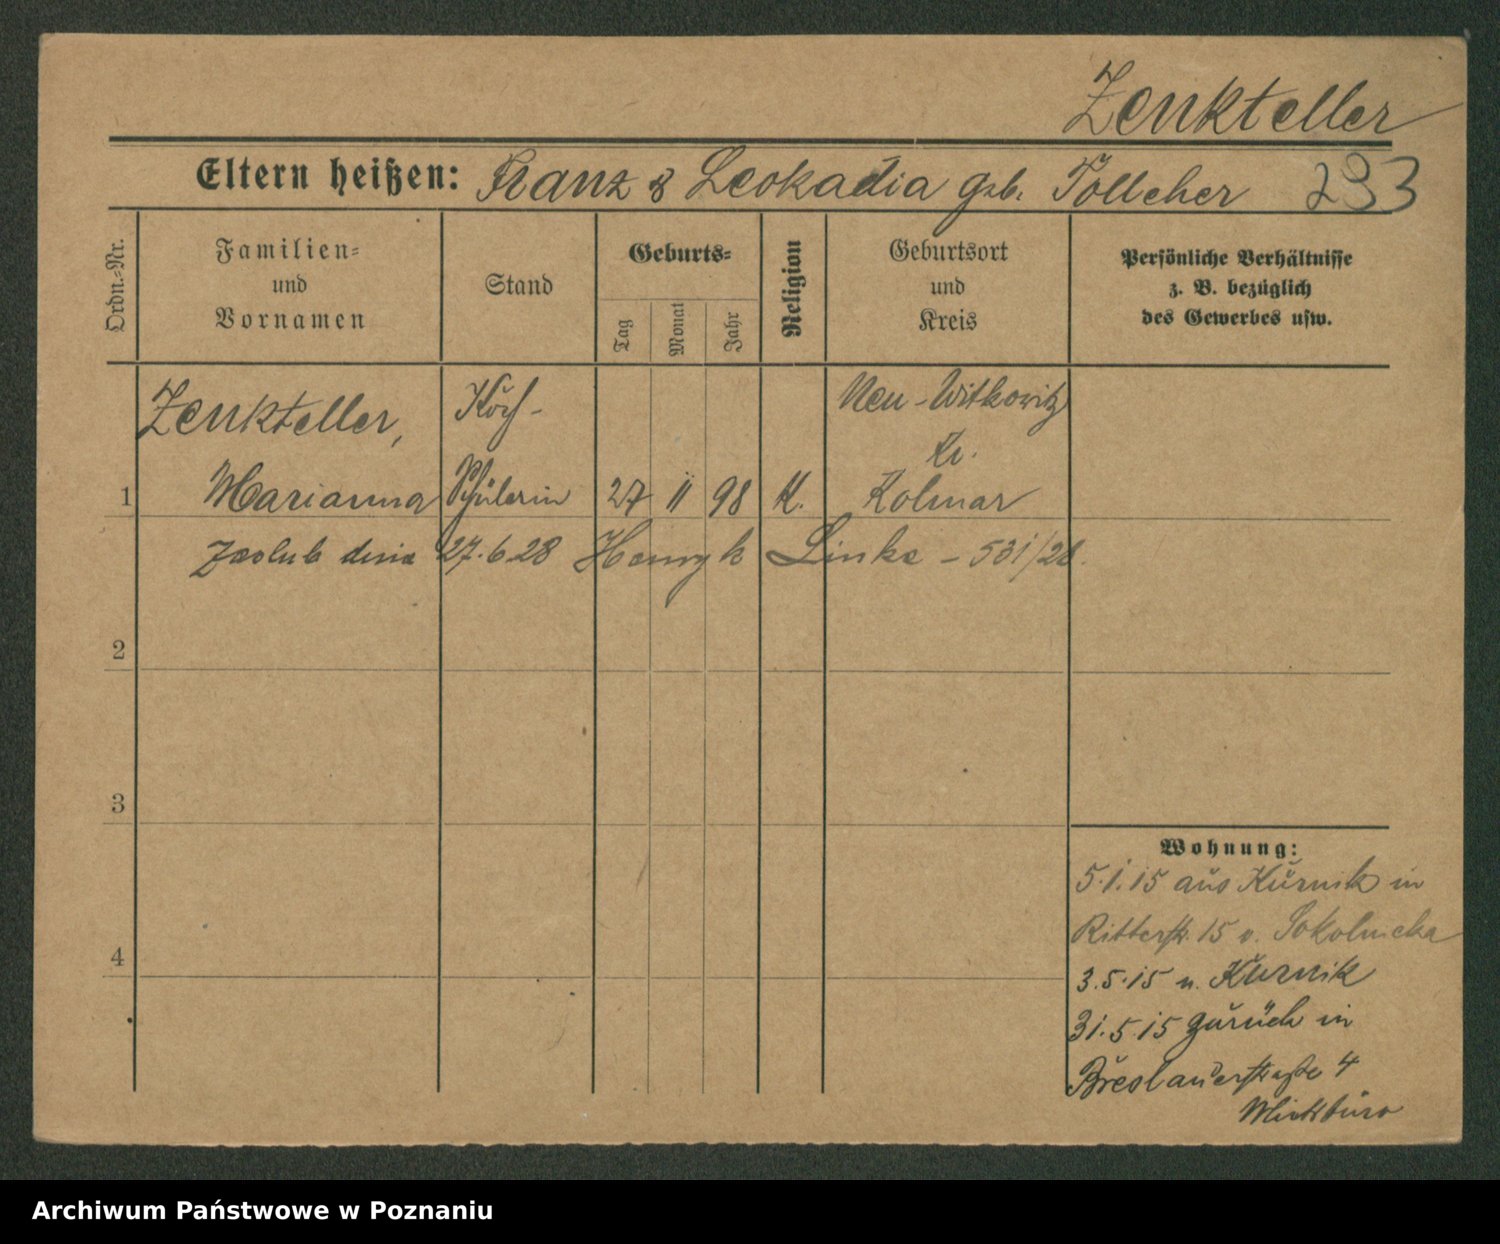 Zenkteller
Eltern heißen: Franz & Leokadia geb. Tollcher 293
Ordn.-Nr.
Familien- und Vornamen
Stand
Geburts-
Tag
Monat
Jahr
Religion
Geburtsort und Kreis
Persönliche Verhältnisse
z. B. bezüglich
des Gewerbes usw.
Zenkteller, Koch-
Neu-Witkowitz
Kr.
1 Marianna Schülerin 27 II 98 K. Kolmar
zaślub dnia 27.6.28 Henryk Linke - 531/28.
2
3
4
Wohnung:
5.1.15 aus Kurnik in
Ritterstr. 15 v. Sokolnicka
3.5.15 n. Kurnik
31.5.15 zurück in
Breslauerstraße 4
Archiwum Państwowe w Poznaniu